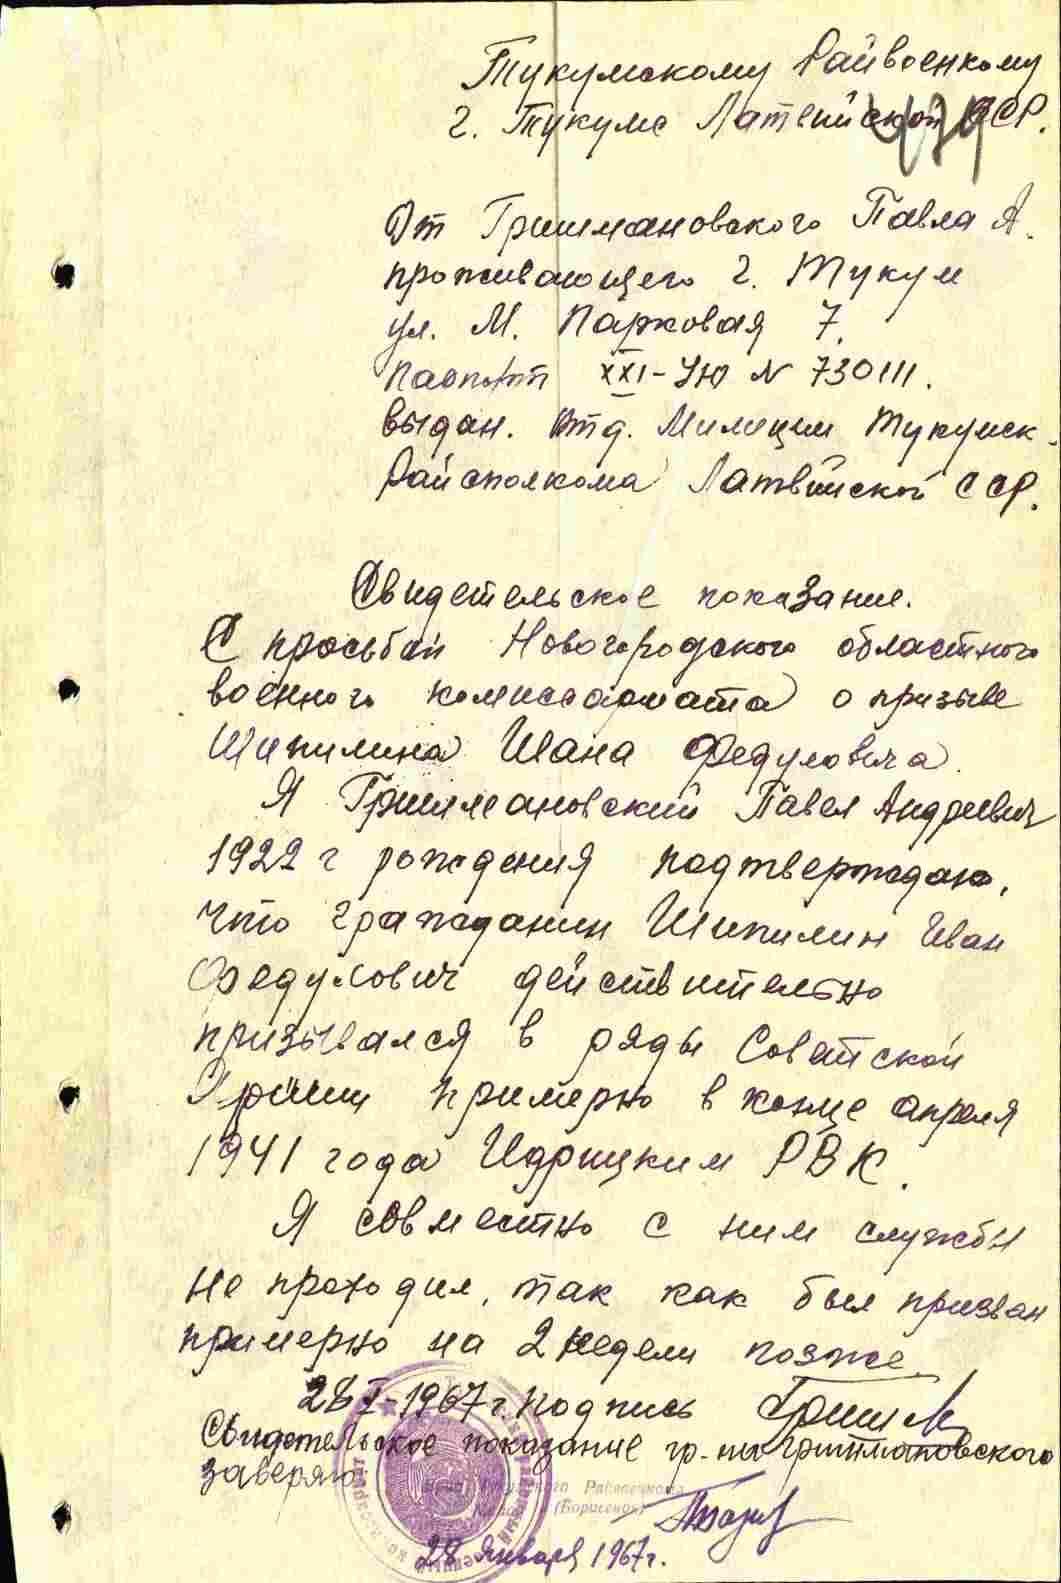 Тукумскому Райвоенкому
г. Тукумс Латвийской ССР.
От Гришмановского Павла А.
проживающего г. Тукум
ул. М. Парковая 7.
паспорт XXI-УЮ N 730111.
выдан. Отд. Милиции Тукумск.
Райсполкома Латвийской ССР.
Свидетельское показание.
С просьбой Новогородского областного
военного комиссариата о призыве
Шипилина Ивана Федуловича.
Я Гришмановский Павел Андреевич
1922 г рождения подтверждаю,
что гражданин Шипилин Иван
Федулович действительно
призывался в ряды Советской
Армии примерно в конце апреля
1941 года Идрицким РВК.
Я совместно с ним службы
не проходил, так как был призван
примерно на 2 недели позже.
28 I-1967 г. Подпись Гришм
Свидетельское показание гр-на Гришмановского
заверяю:
Райвоенкома
(Борисенок)
28 января 1967 г.